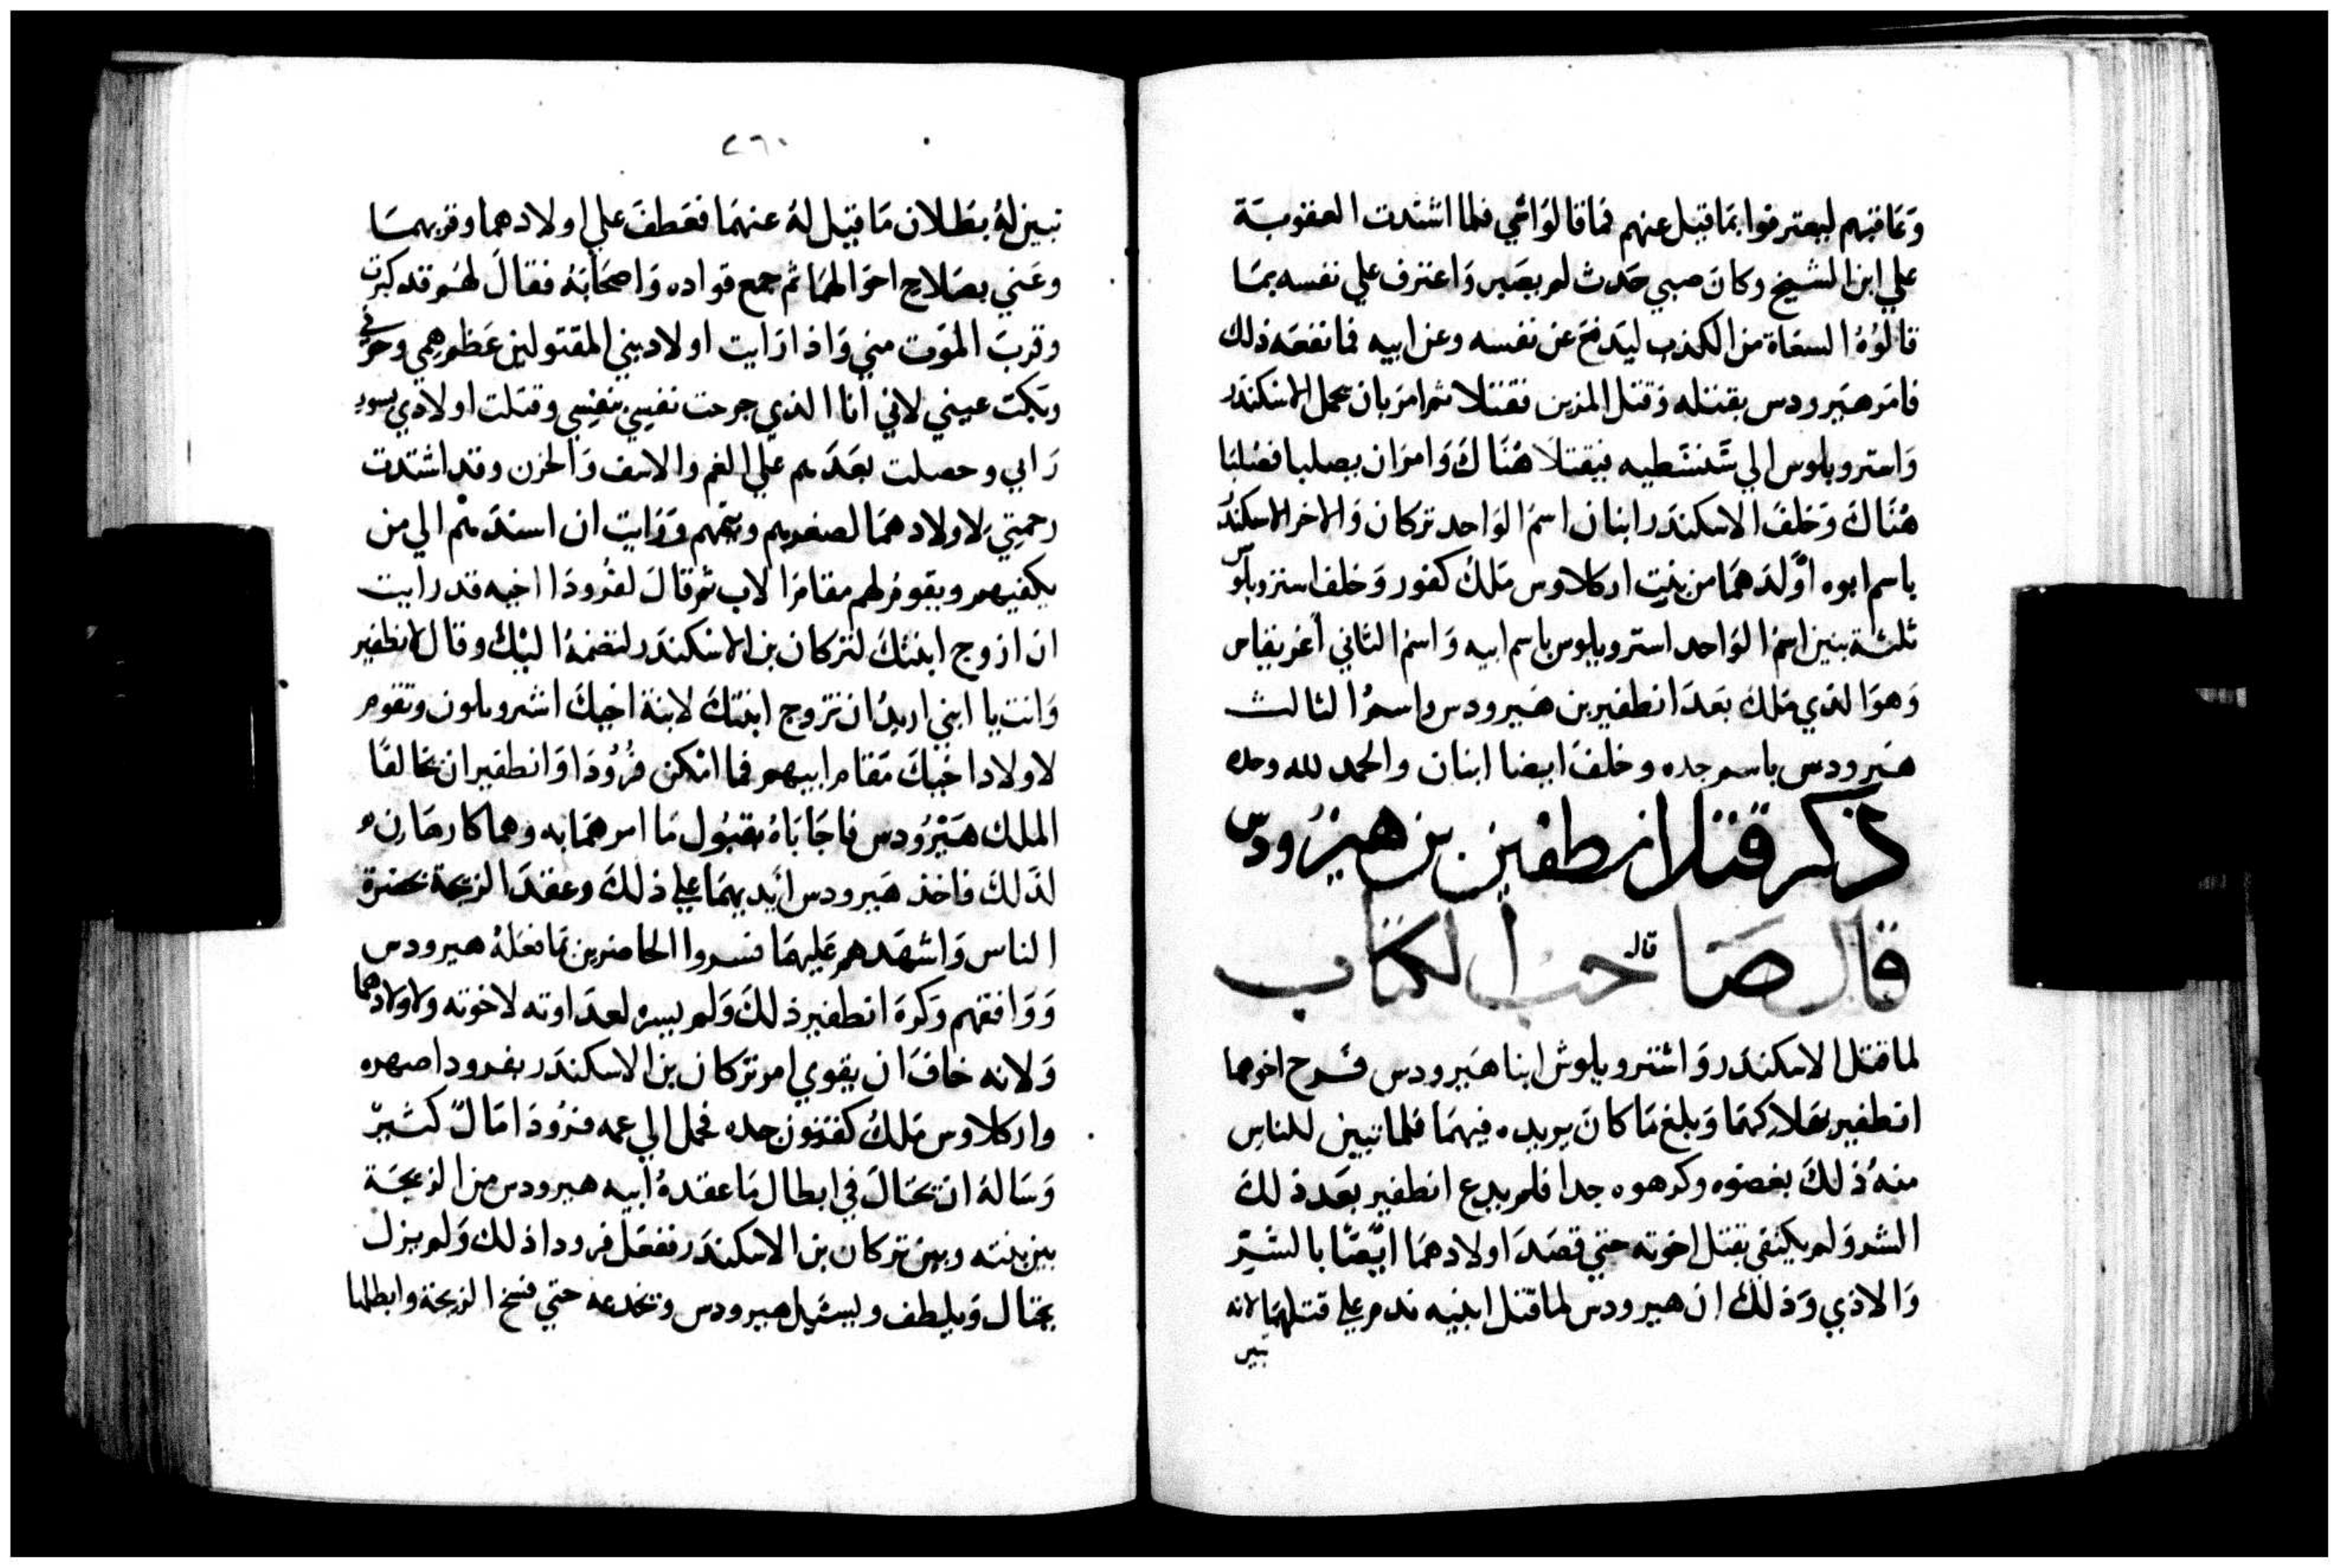 وَعَاقبَهم ليعترفوا بمَا قيل عنهم فمَا قالوَا شي فلما اشتدت العقوبَة
علي ابن الشيخ وكانَ صبي حَدث لم يصَبر وَاعترف علي نفسه بمَا
قالوُهُ السعَاة من الكذب ليَدفع عَن نفسه وعن ابيه فما نفعَه ذلك
فامَر هيَرودس بقتله وَقتل المزين فقتلا ثم امرَ بان يحمل الاسكندَر
وَاستروبلوس الي سَنسَطيه فيقتلَا هُنَاكَ وَامرَ ان يصلبا فصُلبَا
هُنَاكَ وَخلفَ الاسكندَر ابنان اسمُ الوَاحد تركان وَالاخر الاسكندَر
باسم ابوه اوَّلدَهمَا من بنِت اركلاوس مَلكَ كفور وَخلف استروبلوس
ثلثة بنين اسمُ الوَاحد استروبلوس باسم ابيه وَاسمُ الثاني أغريفاس
وَهوَ الذي مَلك بعَدَ انطفير بن هَيرودس واسمُ الثالث
هيَرودس باسم جده وخلفَ ايضا ابنان والحمد لله وحده
ذكر قتل انطفير بن هيرُودس
قال صَاحب الكتاب
قال
لما قتل الاسكندَر وَاشتروبلوش ابنا هيَرودس فَرح اخوهما
انطفير بهَلاكهمَا وَبلغ مَا كانَ يريده فيهمَا فلما تبين للناس
منهُ ذلكَ بغضوه وكرهوه جدا فلم يدع انطفير بعَد ذلكَ
الشر وَلم يكتفي بقتل اخوته حتي قصَدَ اولادهمَا ايَضًا بالشَّر
وَالاذي وَذلكَ ان هيرودس لما قتل ابنيه ندم علي قتلهمَا لانه
تبين
٢٦٠
تبين لهُ بطَلان مَا قيل لهُ عنهمَا فعَطفَ علي اولادهما وقربهمَا
وعَني بصَلاح احوَالهمَا ثم جمع قواده وَاصحَابَهُ فقالَ لهُم قد كبرت
وقربَ الموَت مني وَاذا رَايت اولاد بني المقتولين عَظم همي وحزني
وبَكت عيني لاني أنا الذي جرحت نفسي بنفسي وقتلت اولادي بسو
رَايي وحصلت بعَدَهم علي الغم والاسف وَالحزن وقد اشتدت
رحمتي لاولادهمَا لصغرهم ويتمهم وَرَايت ان اسندَهم الي من
يكفيهم ويقوم لهم مقام الاب ثم قالَ لفرُودَا اخيه قد رايت
ان ازوج ابنتكَ لتركان بن الاسكندَر لتضمهُ اليْك وقال لانطفير
وَانت يا ابني اريدُ ان تزوج ابنتكَ لابنة اخيكَ اشتروبلون وتقوم
لاولاد اخيكَ مَقام ابيهم فما امْكن فرُوُدَا وَانطفير ان يخَالفَا
الملك هيَرُودس فاجَابَاهُ بقبُول مَا امرهمَا به وهما كارهَان
لذَلكَ فاخذ هَيرودس ايَديهمَا علي ذلكَ وعقدَ الزيجة بحضرة
الناس وَاشهَدهم عَليهمَا فسروا الحاضرين بمَا فعَلهُ هيرودس
وَوَافقهم وَكرهَ انطفير ذلكَ وَلم يسره لعدَاوته لاخوته ولاولادهما
وَلانه خافَ ان يقوي امر تركان بن الاسكندَر بفرودا صهره
واركلاوس مَلكُ كفتور جده فحمل الي عمه فرُودَا مَالٌ كَثيرٌ
وَسَالهُ ان يحتَالَ في ابطال مَا عقدهُ أبيه هيرودس من الزيجَة
بين بنته وبين تركان بن الاسكندَر ففعَل فرودا ذلك وَلم يزل
يحتال وَيلطف ويسئَل هيرودس ويخدعه حتي فسخ الزيجة وابطلها